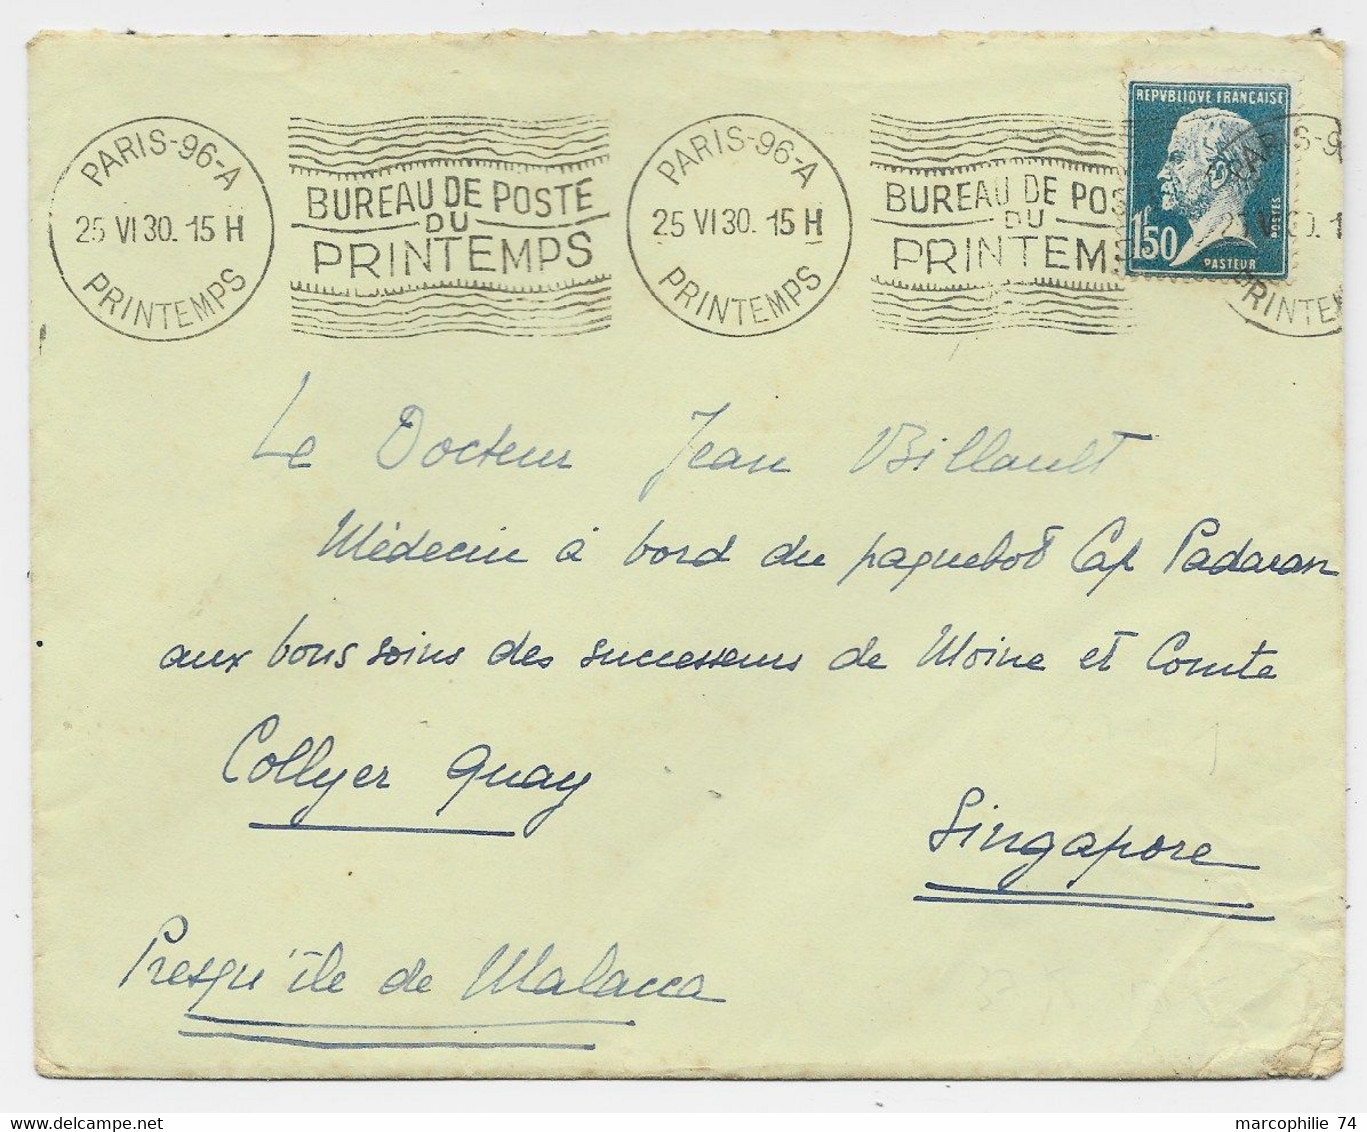 PARIS-96-A
25 VI 30. 15 H
PRINTEMPS
BUREAU DE POSTE
DU
PRINTEMPS
PARIS-96-A
25 VI 30. 15 H
PRINTEMPS
BUREAU DE POS
DU
PRINTEM
REPVBLIQVE FRANÇAISE
1F50
POSTES
PASTEUR
Le Docteur Jean Billault
Médecin à bord du paquebot Cap Padaran
aux bons soins des successeurs de Moine et Comte
Collyer Quay
Singapore
Presqu'île de Malacca
marcophilie 74